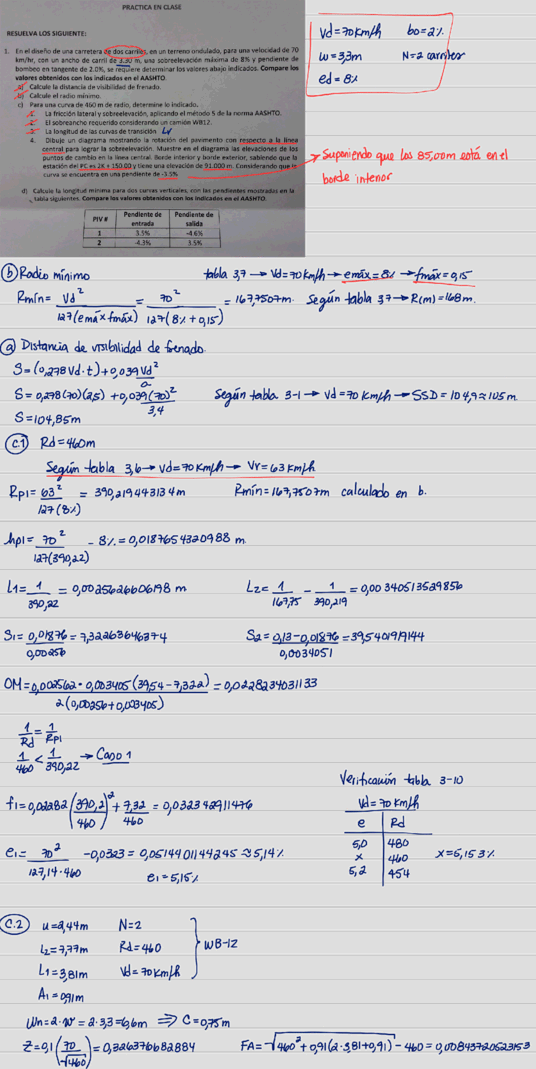 PRACTICA EN CLASE
RESUELVA LOS SIGUIENTE:
1. En el diseño de una carretera de dos carriles, en un terreno ondulado, para una velocidad de 70
km/hr, con un ancho de carril de 3.30 m, una sobreelevación máxima de 8% y pendiente de
bombeo en tangente de 2.0%, se requiere determinar los valores abajo indicados. Compare los
valores obtenidos con los indicados en el AASHTO.
a) Calcule la distancia de visibilidad de frenado.
b) Calcule el radio mínimo.
c) Para una curva de 460 m de radio, determine lo indicado.
1. La fricción lateral y sobreelevación, aplicando el método 5 de la norma AASHTO.
2. El sobreancho requerido considerando un camión WB12.
3. La longitud de las curvas de transición
4. Dibuje un diagrama mostrando la rotación del pavimento con respecto a la línea
central para lograr la sobreelevación. Muestre en el diagrama las elevaciones de los
puntos de cambio en la línea central. Borde interior y borde exterior, sabiendo que la
estación del PC es 2K + 150.00 y tiene una elevación de 91.000 m. Considerando que la
curva se encuentra en una pendiente de -3.5%.
d) Calcule la longitud mínima para dos curvas verticales, con las pendientes mostradas en la
tabla siguientes. Compare los valores obtenidos con los indicados en el AASHTO.
PIV # Pendiente de entrada Pendiente de salida
1 3.5% -4.6%
2 -4.3% 3.5%
Vd=70km/h bo=2%
w=3,3m N=2 carriles
ed=8%
Suponiendo que los 85,00m está en el
borde interior
b Radio mínimo tabla 3,7 → Vd=70km/h → emáx=8% → fmáx=0,15
Rmín= Vd² / 127(emáx+fmáx) = 70² / 127(8%+0,15) = 167,7507m. Según tabla 3.7 → R(m)=168m.
a Distancia de visibilidad de frenado.
S=(0,278Vd·t)+0,039Vd²/a
S=0,278(70)(2,5)+0,039(70)²/3,4 Según tabla 3-1 → Vd=70 Km/h → SSD=104,9≈105m
S=104,85m
C.1 Rd=460m
Según tabla 3,6 → Vd=70km/h → Vr=63km/h
Rpi=63²/127(8%) = 390,219443134m Rmín=167,7507m calculado en b.
hpi=70²/127(390,22) - 8%=0,0187654320988 m
L1=1/390,22 = 0,0025626606198 m L2=1/167,75 - 1/390,219=0,00340513529856
S1=0,01876/0,00256=7,32263646374 S2=0,13-0,01876/0,0034051=39,5401919144
OM=0,002562·0,003405(39,54-7,322)/2(0,00256+0,003405)=0,0228234031133
1/Rd = 1/Rpi
1/460 < 1/390,22 → Caso 1
Verificación tabla 3-10
Vd=70 Km/h
e Rd
5,0 480
x 460 x=5,153%
5,2 454
f1=0,02282(390,2/460)²+7,32/460=0,032342911476
e1=70²/127,14·460 -0,0323=0,0514401144245≈5,14%
e1=5,15%
C.2 u=2,44m N=2
L2=7,77m Rd=460 WB-12
L1=3,81m Vd=70Km/h
A1=0,91m
Wn=2·w=2·3,3=6,6m ⇒ C=0,75m
Z=0,1(70/√460)=0,326376682884 FA=√460²+0,91(2·3,81+0,91)-460=0,00843720523153